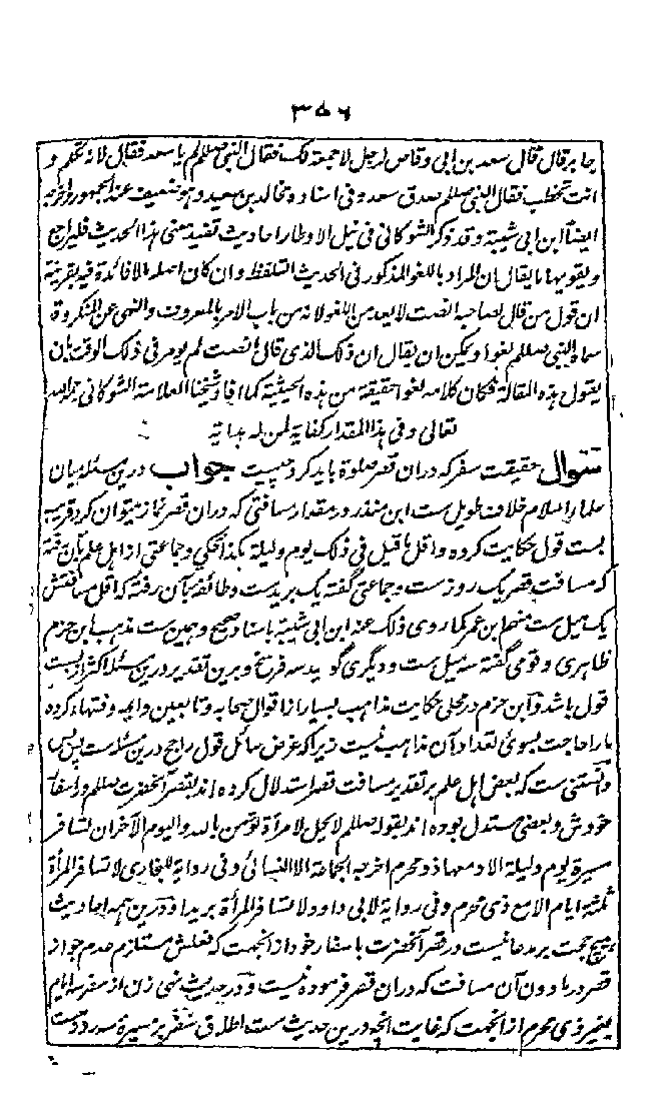 ۳۵۶
جابر قال قال سعد بن ابی وقاص لرجل لا جمعة لک فقال النبی صللم لم یا سعد فقال لانه تکلم و
انت تخطب فقال النبی صللم صدق سعد وفی اسناده مجالد بن سعید وهو ضعیف عند الجمهور واخرجه
ایضاً ابن ابی شیبة وقد ذکر الشوکانی فی نیل الاوطار احادیث تفید معنی هذا الحدیث فلیراجع
ویقویها ما یقال ان المراد باللغو المذکور فی الحدیث التلفظ وان کان اصله ما لا فائدة فیه بقرینة
ان قول من قال لصاحبه انصت لا یعد من اللغو لانه من باب الامر بالمعروف والنهی عن المنکر وقد
سماه النبی صللم لغوا ویمکن ان یقال ان ذلک الذی قال انصت لم یومر فی ذلک الوقت بان
یقول هذه المقالة فکان کلامه لغوا حقیقة من هذه الحیثیة کما افاد شیخنا العلامة الشوکانی رحمه الله
تعالی وفی هذا المقدار کفایة لمن له هدایة
سوال حقیقت سفر که دران قصر صلوة باید کرد چیست جواب درین مسئله میان
علمای اسلام خلاف طویل ست ابن منذر در مقدار مسافتی که دران قصر نماز میتوان کرد قریب
بست قول حکایت کرده و اقل ما قیل فی ذلک یوم ولیلة هکذا حکی و جماعتی از اهل علم بآن رفته
که مسافت قصر یک روز ست و جماعتی گفته یک برید ست و طائفه بآن رفته که اقل مسافتش
یک میل ست منهم ابن عمر کما روی ذلک عنه ابن ابی شیبة باسناد صحیح و همین ست مذهب ابن حزم
ظاهری و قومی گفته سه میل ست و دیگری گوید سه فرسخ و برین تقدیر درین مسئله اکثر از بست
قول باشد و ابن حزم در محلی حکایت مذاهب بسیار از اقوال صحابه و تابعین و ائمه و فقهاء کرده
ما را حاجت بسوی تعداد آن مذاهب نیست زیرا که غرض سائل قول راجح درین مسئله ست پس
دانستنی ست که بعض اهل علم بر تقدیر مسافت قصر استدلال کرده اند بقصر آنحضرت صللم در اسفار
خودش و بعضی مستدل بوده اند بقوله صللم لا یحل لامرأة تؤمن بالله والیوم الآخر ان تسافر
مسیرة یوم ولیلة الا ومعها ذو محرم اخرجه الجماعة الا النسائی وفی روایة للبخاری لا تسافر المرأة
ثلثة ایام الا مع ذی محرم وفی روایة لابی داود لا تسافر المرأة بریدا و درین همه احادیث
هیچ حجت بر مدعا نیست در قصر آنحضرت باسفار خود از انجهت که فعلش مستلزم عدم جواز
قصر در ما دون آن مسافت که دران قصر فرموده نیست و در حدیث نهی زن از سفر سه ایام
بغیر ذی محرم از انجهت که غایت آنچه درین حدیث ست اطلاق سفر بر مسیرۀ سه روز ست